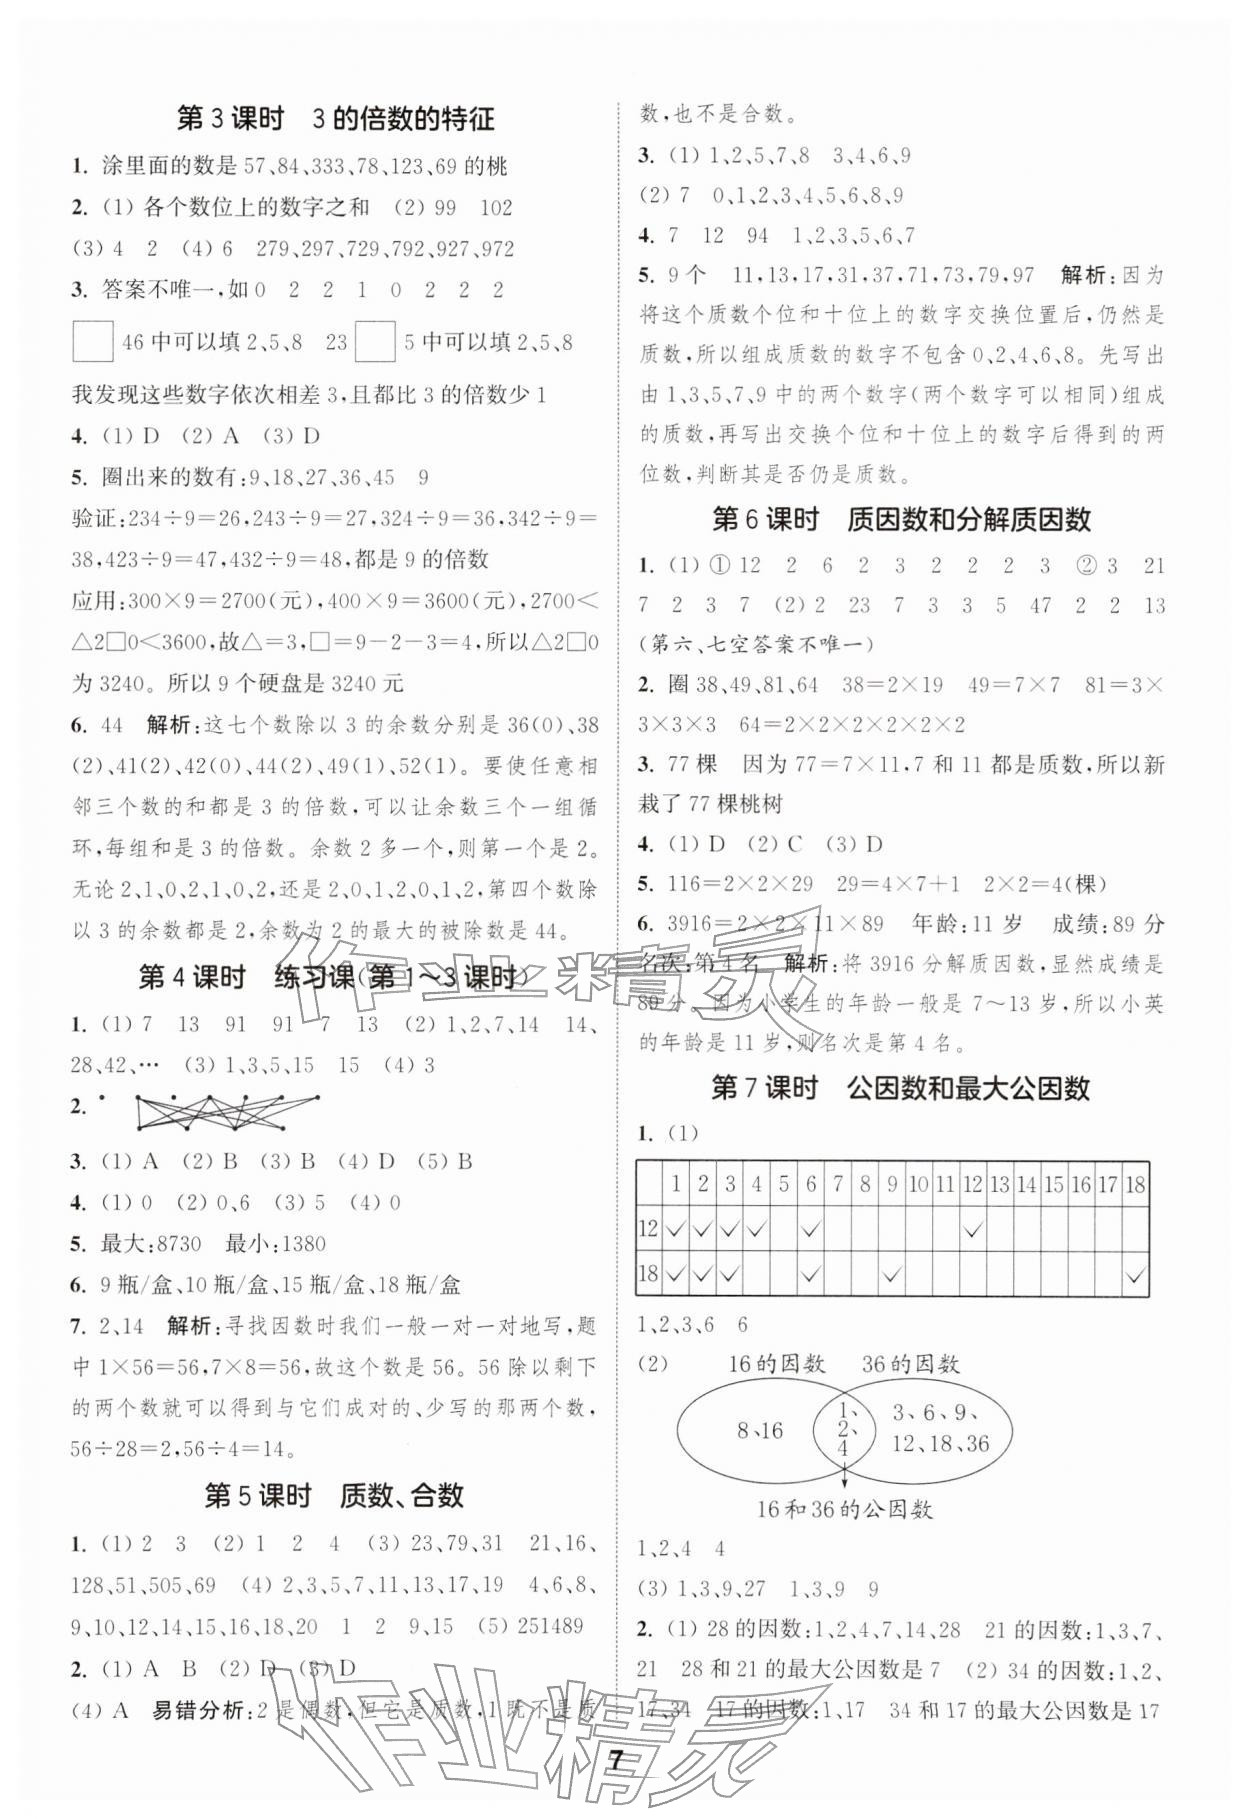 第 3 课时　3 的倍数的特征
1. 涂里面的数是 57、84、333、78、123、69 的桃
2. (1) 各个数位上的数字之和　(2) 99　102
(3) 4　2　(4) 6　279、297、729、792、927、972
3. 答案不唯一，如 0　2　2　1　0　2　2　2
□ 46 中可以填 2、5、8　23 □ 5 中可以填 2、5、8
我发现这些数字依次相差 3，且都比 3 的倍数少 1
4. (1) D　(2) A　(3) D
5. 圈出来的数有：9、18、27、36、45　9
验证：234÷9=26，243÷9=27，324÷9=36，342÷9=
38，423÷9=47，432÷9=48，都是 9 的倍数
应用：300×9=2700(元)，400×9=3600(元)，2700<
△2□0<3600，故△=3，□=9-2-3=4，所以△2□0
为 3240。所以 9 个硬盘是 3240 元
6. 44　解析：这七个数除以 3 的余数分别是 36(0)、38
(2)、41(2)、42(0)、44(2)、49(1)、52(1)。要使任意相
邻三个数的和都是 3 的倍数，可以让余数三个一组循
环，每组和是 3 的倍数。余数 2 多一个，则第一个是 2。
无论 2、1、0、2、1、0、2，还是 2、0、1、2、0、1、2，第四个数除
以 3 的余数都是 2，余数为 2 的最大的被除数是 44。
第 4 课时　练习课(第 1～3 课时)
1. (1) 7　13　91　91　7　13　(2) 1、2、7、14　14、
28、42、…　(3) 1、3、5、15　15　(4) 3
2.
3. (1) A　(2) B　(3) B　(4) D　(5) B
4. (1) 0　(2) 0、6　(3) 5　(4) 0
5. 最大：8730　最小：1380
6. 9 瓶/盒、10 瓶/盒、15 瓶/盒、18 瓶/盒
7. 2、14　解析：寻找因数时我们一般一对一对地写，题
中 1×56=56，7×8=56，故这个数是 56。56 除以剩下
的两个数就可以得到与它们成对的、少写的那两个数，
56÷28=2，56÷4=14。
第 5 课时　质数、合数
1. (1) 2　3　(2) 1　2　4　(3) 23、79、31　21、16、
128、51、505、69　(4) 2、3、5、7、11、13、17、19　4、6、8、
9、10、12、14、15、16、18、20　1　2　9、15　(5) 251489
2. (1) A　B　(2) D　(3) D
(4) A　易错分析：2 是偶数，但它是质数，1 既不是质
数，也不是合数。
3. (1) 1、2、5、7、8　3、4、6、9
(2) 7　0、1、2、3、4、5、6、8、9
4. 7　12　94　1、2、3、5、6、7
5. 9 个　11，13，17，31，37，71，73，79，97　解析：因为
将这个质数个位和十位上的数字交换位置后，仍然是
质数，所以组成质数的数字不包含 0、2、4、6、8。先写出
由 1、3、5、7、9 中的两个数字(两个数字可以相同)组成
的质数，再写出交换个位和十位上的数字后得到的两
位数，判断其是否仍是质数。
第 6 课时　质因数和分解质因数
1. (1) ① 12　2　6　2　3　2　2　2　3　② 3　21
7　2　3　7　(2) 2　23　7　3　3　5　47　2　2　13
(第六、七空答案不唯一)
2. 圈 38、49、81、64　38=2×19　49=7×7　81=3×
3×3×3　64=2×2×2×2×2×2
3. 77 棵　因为 77=7×11，7 和 11 都是质数，所以新
栽了 77 棵桃树
4. (1) D　(2) C　(3) D
5. 116=2×2×29　29=4×7+1　2×2=4(棵)
6. 3916=2×2×11×89　年龄：11 岁　成绩：89 分
名次：第 4 名　解析：将 3916 分解质因数，显然成绩是
89 分。因为小学生的年龄一般是 7～13 岁，所以小英
的年龄是 11 岁，则名次是第 4 名。
第 7 课时　公因数和最大公因数
1. (1)
1 2 3 4 5 6 7 8 9 10 11 12 13 14 15 16 17 18
12 ✓ ✓ ✓ ✓ ✓ ✓
18 ✓ ✓ ✓ ✓ ✓ ✓
1、2、3、6　6
(2)　16 的因数　36 的因数
8、16　1、2、4　3、6、9、12、18、36
16 和 36 的公因数
1、2、4　4
(3) 1、3、9、27　1、3、9　9
2. (1) 28 的因数：1、2、4、7、14、28　21 的因数：1、3、7、
21　28 和 21 的最大公因数是 7　(2) 34 的因数：1、2、
17、34　17 的因数：1、17　34 和 17 的最大公因数是 17
7
作业精灵
作业精灵